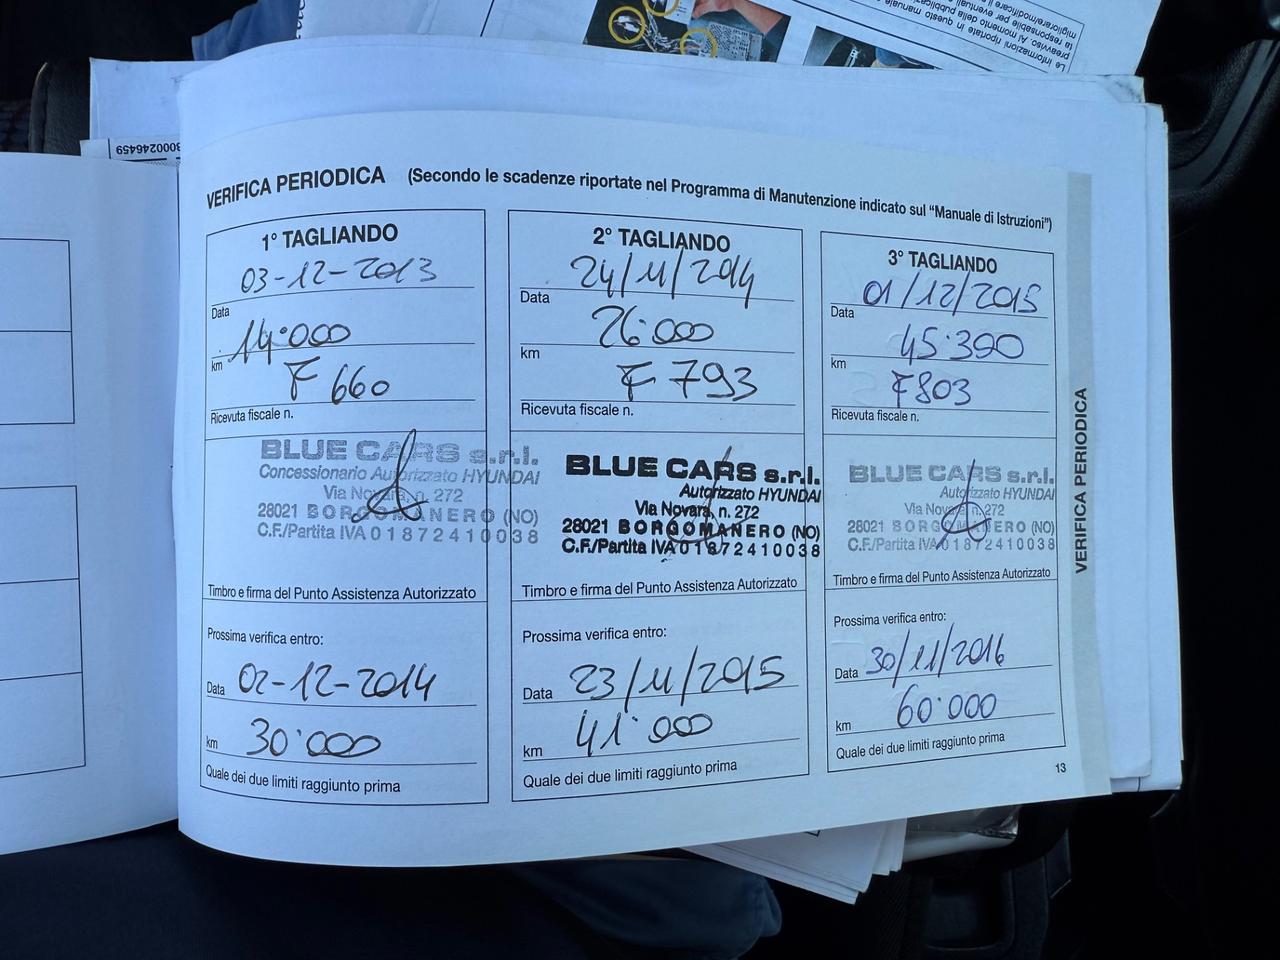 Le informazioni riportate in questo manuale
preavviso. Al momento della pubblicazi
ta responsabile per eventuali
migliorare/modificare i
80000246459
VERIFICA PERIODICA (Secondo le scadenze riportate nel Programma di Manutenzione indicato sul “Manuale di Istruzioni”)
1° TAGLIANDO
03-12-2013
Data
14.000
km
F 660
Ricevuta fiscale n.
BLUE CARS s.r.l.
Concessionario Autorizzato HYUNDAI
Via Novara, n. 272
28021 BORGOMANERO (NO)
C.F./Partita IVA 01872410038
Timbro e firma del Punto Assistenza Autorizzato
Prossima verifica entro:
Data 02-12-2014
km 30.000
Quale dei due limiti raggiunto prima
2° TAGLIANDO
24/11/2014
Data
26.000
km
F 793
Ricevuta fiscale n.
BLUE CARS s.r.l.
Autorizzato HYUNDAI
Via Novara, n. 272
28021 BORGOMANERO (NO)
C.F./Partita IVA 01872410038
Timbro e firma del Punto Assistenza Autorizzato
Prossima verifica entro:
Data 23/11/2015
km 41.000
Quale dei due limiti raggiunto prima
3° TAGLIANDO
01/12/2015
Data
45.390
km
F803
Ricevuta fiscale n.
BLUE CARS s.r.l.
Autorizzato HYUNDAI
Via Novara, n. 272
28021 BORGOMANERO (NO)
C.F./Partita IVA 01872410038
Timbro e firma del Punto Assistenza Autorizzato
Prossima verifica entro:
Data 30/11/2016
km 60.000
Quale dei due limiti raggiunto prima
VERIFICA PERIODICA
13